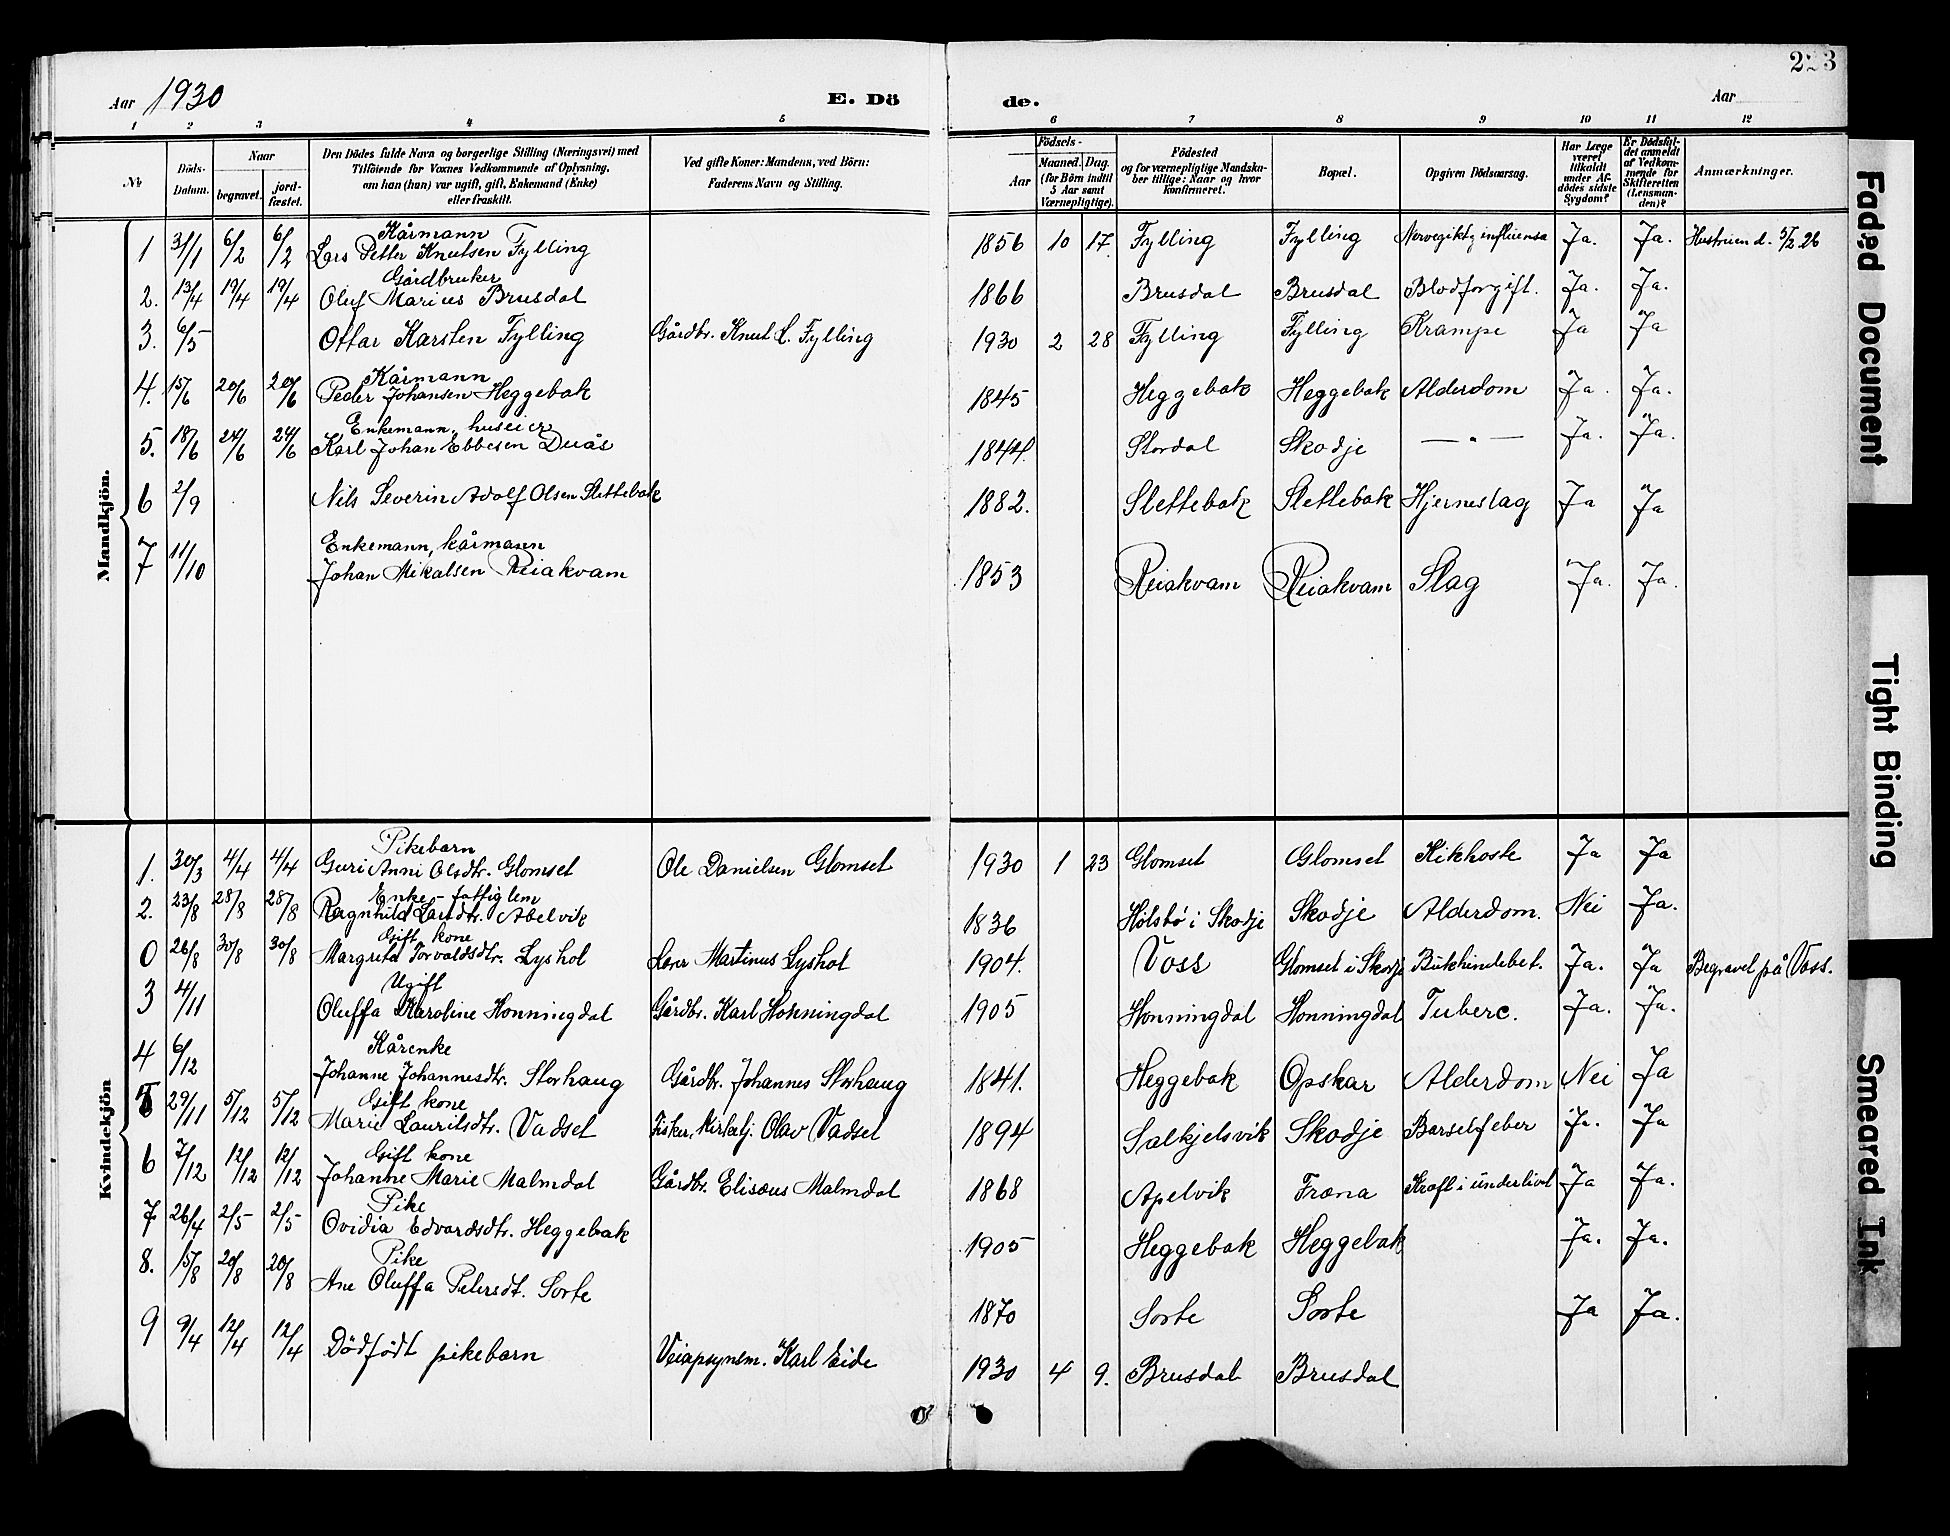 223
Aar 1930 E. Dö de. Aar
1 2 3 4 5 6 7 8 9 10 11 12
No
Döds-Datum.
Naar
begravet. jord-fæstet.
Den Dödes fulde Navn og borgerlige Stilling (Næringsvei) med
Tilföiende for Voxnes Vedkommende af Oplysning,
om han (hun) var ugift, gift, Enkemand (Enke)
eller fraskilt.
Ved gifte Koner: Mandens, ved Börn:
Faderens Navn og Stilling.
Födsels-
Aar Maaned. Dag.
(for Börn indtil
5 Aar samt
Værnepligtige).
Födested
og for værnepligtige Mandska-
ber tillige: Naar og hvor
konfirmeret.
Bopæl.
Opgiven Dödsaarsag.
Har Læge
været
tilkaldt
under Af-
dödes sidste
Sygdom?
Er Dödsfal-
det anmeldt
af Vedkom-
mende for
Skifteretten
(Lensman-
den)?
Anmærkninger.
Mandkjön.
Kårmann
1 31/1 6/2 6/2 Lars Petter Knutsen Fylling 1856 10 17. Fylling Fylling influensa Ja. Ja. Hustruen d. 5/2 26
Gårdbruker
2. 13/4 19/4 19/4 Oluf Marius Brusdal 1866 Brusdal Brusdal Blodforgift. Ja. Ja.
3. 6/5 Ottar Karsten Fylling Gårdbr. Knut L. Fylling 1930 2 28 Fylling Fylling Krampe Ja Ja
Kårmann
4. 15/6 20/6 20/6 Peder Johansen Heggebak 1845 Heggebak Heggebak Alderdom Ja. Ja.
Enkemann, huseier
5. 18/6 24/6 24/6 Karl Johan Ebbesen Duås 1844. Stordal Skodje — " — Ja. Ja.
6 2/9 Nils Severin Adolf Olsen Slettebak 1882. Slettebak Slettebak Hjerneslag Ja Ja
Enkemann, kårmann
7 11/10 Johan Mikalsen Reiakvam 1853 Reiakvam Reiakvam Slag Ja. Ja.
Kvindekjön
Pikebarn
1. 30/3 4/4 4/4 Guri Anni Olsdtr. Glomset Ole Danielsen Glomset 1930 1 23 Glomset Glomset Kikhoste Ja Ja
Enke - fattiglem
2. 23/8 28/8 28/8 Ragnhild Larsdtr. Abelvik 1836 Holsbø i Skodje Skodje Alderdom. Nei Ja.
Gift kone
0 26/8 30/8 30/8 Margreta Torvaldsdtr. Lyshol Lærer Martinus Lyshol 1904. Voss Glomset i Skodje Bukhindebet. Ja. Ja Begravet på Voss.
Ugift
3 4/11 Oluffa Karoline Honningdal Gårdbr. Karl Honningdal 1905 Honningdal Honningdal Tuberc. Ja. Ja.
Kårenke
4 6/12 Johanne Johannesdtr. Storhaug Gårdbr. Johannes Storhaug 1841. Heggebak Opskar Alderdom Nei Ja
Gift kone
5 29/11 5/12 5/12 Marie Lauritsdtr. Vadset Fisker, Kirketj. Olav Vadset 1894 Solkjelsvik Skodje Barselsfeber Ja. Ja
Gift kone
6 7/12 12/12 12/12 Johanne Marie Malmdal Gårdbr. Elisæus Malmdal 1868 Apelvik Fræna Kræft i underlivet Ja Ja.
Pike
7 26/4 2/5 2/5 Ovidia Edvardsdtr. Heggebak 1905 Heggebak Heggebak Ja. Ja.
Pike
8. 15/8 20/8 20/8 Ane Oluffa Petersdt. Sorte 1870 Sorte Sorte Ja Ja.
9 9/4 12/4 12/4 Dödfödt pikebarn Veiopsynsm. Karl Eide 1930 4 9. Brusdal Brusdal
Faded Document
Tight Binding
Smeared Ink